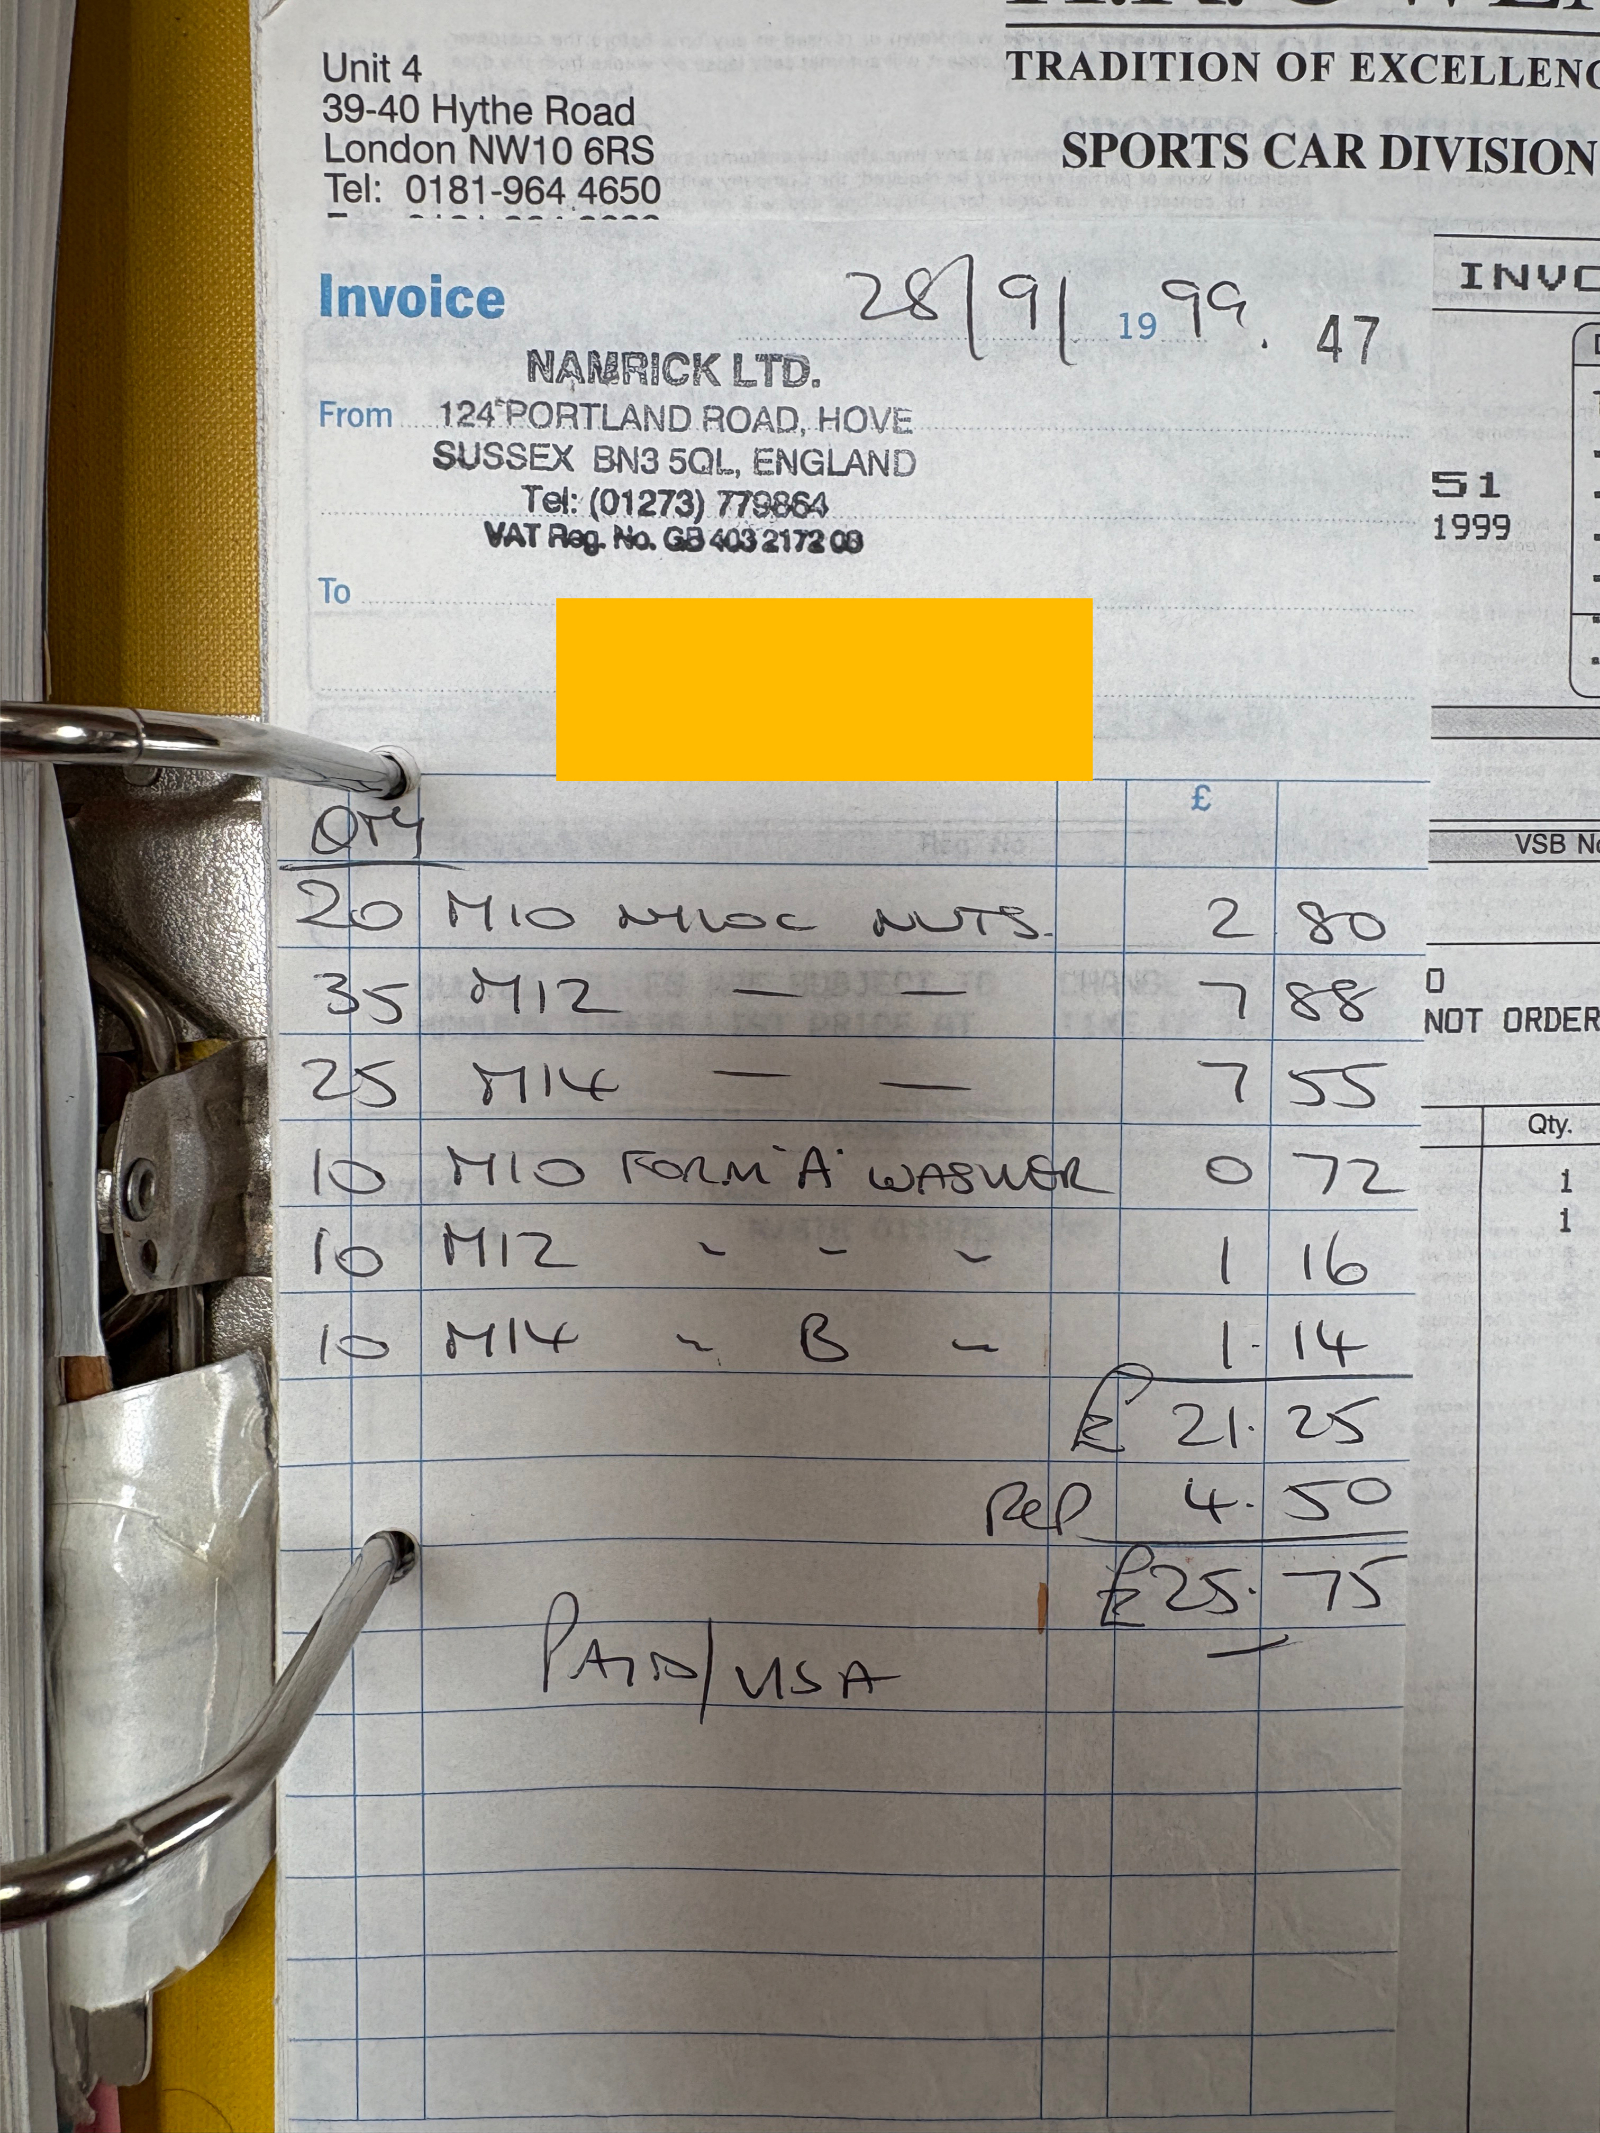 TRADITION OF EXCELLENC
SPORTS CAR DIVISION
Unit 4
39-40 Hythe Road
London NW10 6RS
Tel: 0181-964 4650
Invoice
28/9/ 1999. 47
NAMRICK LTD.
From 124 PORTLAND ROAD, HOVE
SUSSEX BN3 5QL, ENGLAND
Tel: (01273) 779864
VAT Reg. No. GB 403 2172 08
To
£
QTY
20 M10 NYLOC NUTS. 2 80
35 M12 — — 7 88
25 M14 — — 7 55
10 M10 FORM "A" WASHER 0 72
10 M12 " " " 1 16
10 M14 " B " 1.14
£ 21.25
PeP 4.50
£25.75
PAID/VISA
INVO
51
1999
VSB No
0
NOT ORDER
Qty.
1
1